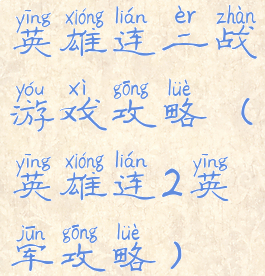 yīng xióng lián èr zhàn
英雄连二战
yóu xì gōng lüè
游戏攻略（
yīng xióng lián yīng
英雄连2英
jūn gōng lüè
军攻略）